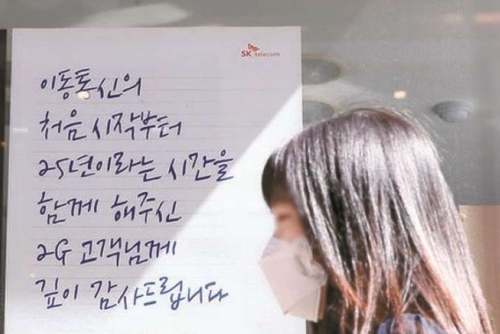 SK telecom
이동통신의
처음 시작부터
25년이라는 시간을
함께 해주신
2G 고객님께
깊이 감사드립니다